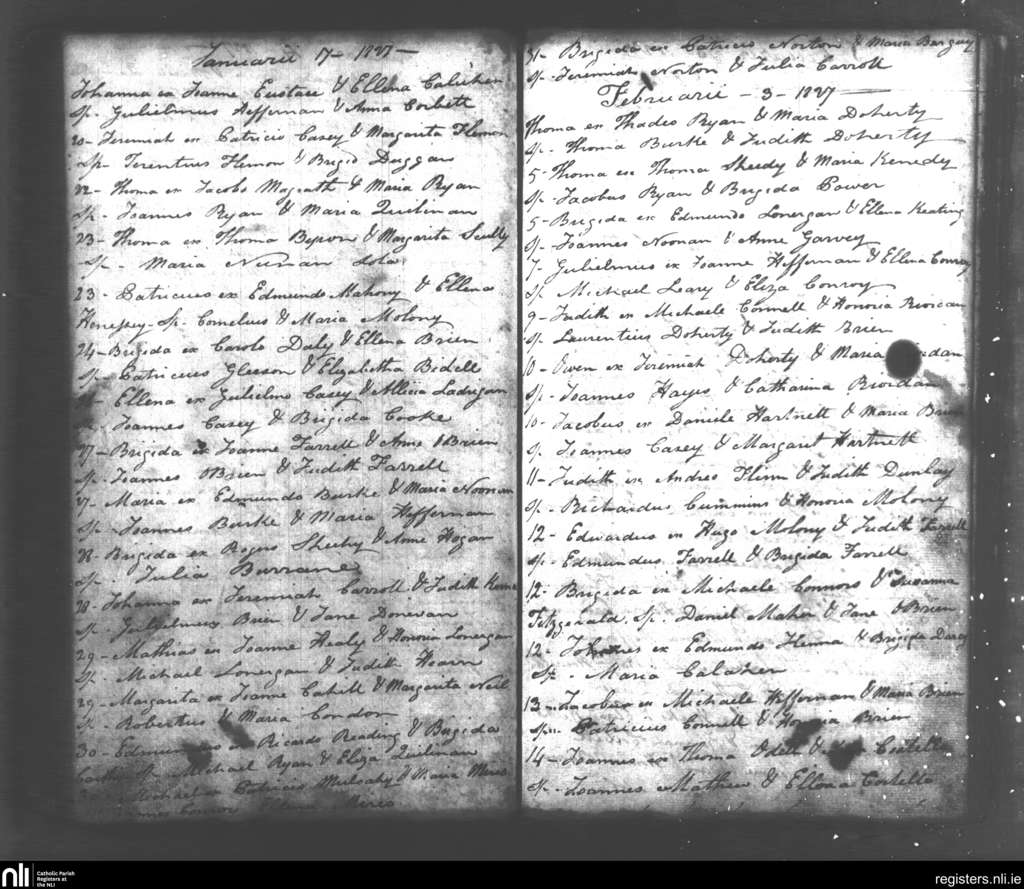 Januarii 17 - 1827 -
Johanna ex Joanne Eustace & Ellena
Sp. Gulielmus Heffernan & Anna Corbett
20 - Jeremiah ex Patricio Casey & Margarita
Sp - Terentius & Brigid Duggan
22 - Thoma ex Jacobo Magrath & Maria Ryan
Sp - Joannes Ryan & Maria Quilinan
23 - Thoma ex Thoma & Margarita Scully
Sp - Maria Nunan sola
23 - Patricius ex Edmundo Mahony & Ellena
Henessy - Sp. Cornelius & Maria Molony
24 - Brigida ex Carolo Daly & Ellena Brien
Sp - Patricius Gleeson & Elizabetha Bidell
Ellena ex Gulielmo Casey & Allicia Ladrigan
Joannes Casey & Brigida Cooke
27 - Brigida ex Joanne Farrell & Anne OBrien
Sp. Joannes OBrien & Judith Farrell
27 - Maria ex Edmundo Burke & Maria Noonan
Sp - Joannes Burke & Maria Heffernan
28 - Brigida ex Rogero Sheehy & Anne Hogan
Sp Julia Burrane
28 - Johanna ex Jeremiah Carroll & Judith
Sp - Gulielmus Brien & Jane Donovan
29 - Mathias ex Joanne Healy & Honora Lonergan
Sp. Michael Lonergan & Judith Hearn
29 - Margarita ex Joanne Cahill & Margarita Neil
Sp. Robertus & Maria Condon
30 - Edmundus ex Ricardo Reading & Brigida
Sp - Michael Ryan & Eliza Quilinan
Michael ex Patricio Mulcahy & Maria
31 - Brigida ex Patricio Norton & Maria
Sp - Jeremiah Norton & Julia Carroll
Februarii - 3 - 1827
Thoma ex Thadeo Ryan & Maria Doherty
Sp. Thoma Burke & Judith Doherty
5 - Thoma ex Thoma Sheedy & Maria Kenedy
Sp Jacobus Ryan & Brigida Power
5 - Brigida ex Edmundo Lonergan & Ellena Keating
Sp - Joannes Noonan & Anne Garvey
7 - Gulielmus ex Joanne Heffernan & Ellena Conroy
Sp Michael Leary & Eliza Conroy
9 - Judith ex Michaele Connell & Honoria Riordan
Sp. Laurentius Doherty & Judith Brien
10 - Owen ex Jeremiah Doherty & Maria
Sp - Joannes Hayes & Catharina Riordan
10 - Jacobus ex Daniele Hartnett & Maria
Sp Joannes Casey & Margaret Hartnett
11 - Judith ex Andreo Flinn & Judith Dunlay
Sp - Richardus Cummins & Honora Molony
12 - Edwardus ex Hugo Molony & Judith Farrell
Sp - Edmundus Farrell & Brigida Farrell
12 - Brigida ex Michaele Connors & Susanna
Fitzgerald. Sp. Daniel Maher & Jane OBrien
12 - Johannes ex Edmundo & Brigida Darcy
Sp - Maria Calaher
13 - Jacobus ex Michaele Heffernan & Maria Brien
Sp - Patricius Connell & Honora Brien
14 - Joannes ex Thoma Odell & Costello
Sp - Joannes Mathew & Ellena Costello
nli
Catholic Parish
Registers at
the NLI
registers.nli.ie